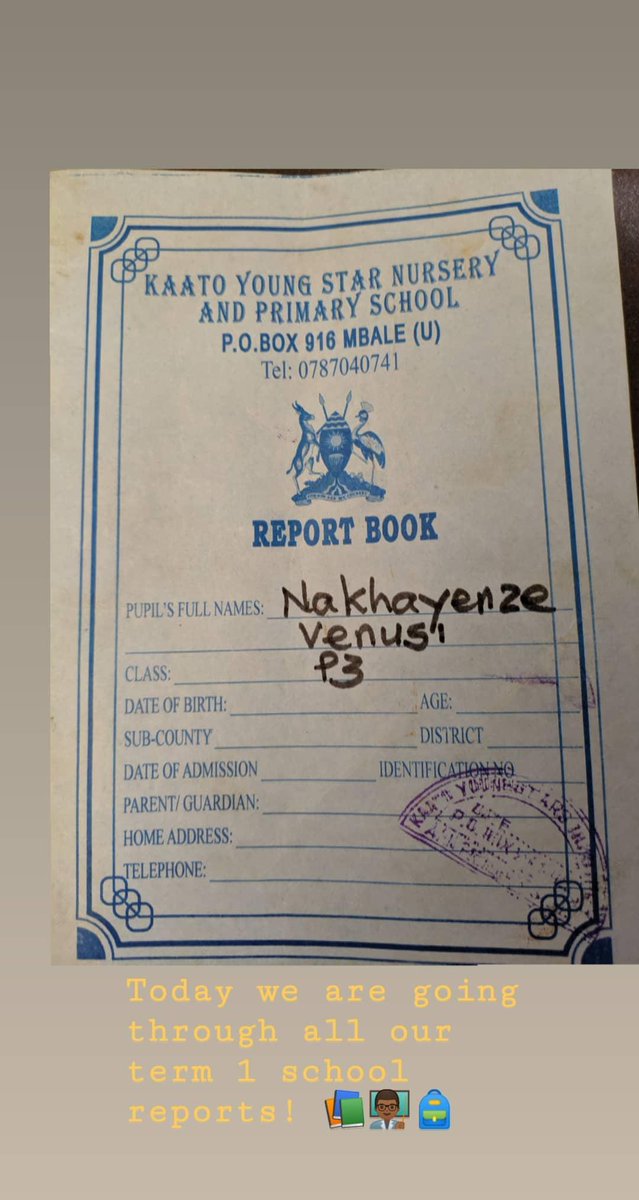 KAATO YOUNG STAR NURSERY
AND PRIMARY SCHOOL
P.O.BOX 916 MBALE (U)
Tel: 0787040741
REPORT BOOK
PUPIL'S FULL NAMES: Nakhayenze
Venus
CLASS: P3
DATE OF BIRTH: AGE:
SUB-COUNTY DISTRICT
DATE OF ADMISSION IDENTIFICATION NO
PARENT/ GUARDIAN:
HOME ADDRESS:
TELEPHONE:
KAATO YOUNG STARS
P.O. BOX
Today we are going
through all our
term 1 school
reports! 📚👨🏾‍🏫🎒